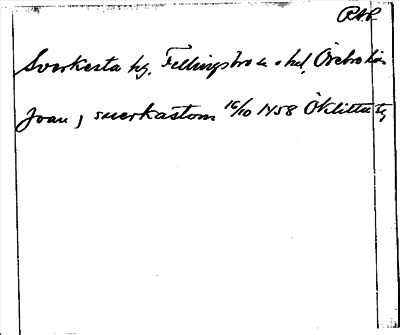 RAP
Sverkesta by, Fellingsbro sn o hd, Örebro län
Joan j swerkastom 16/10 1458 Öklitta